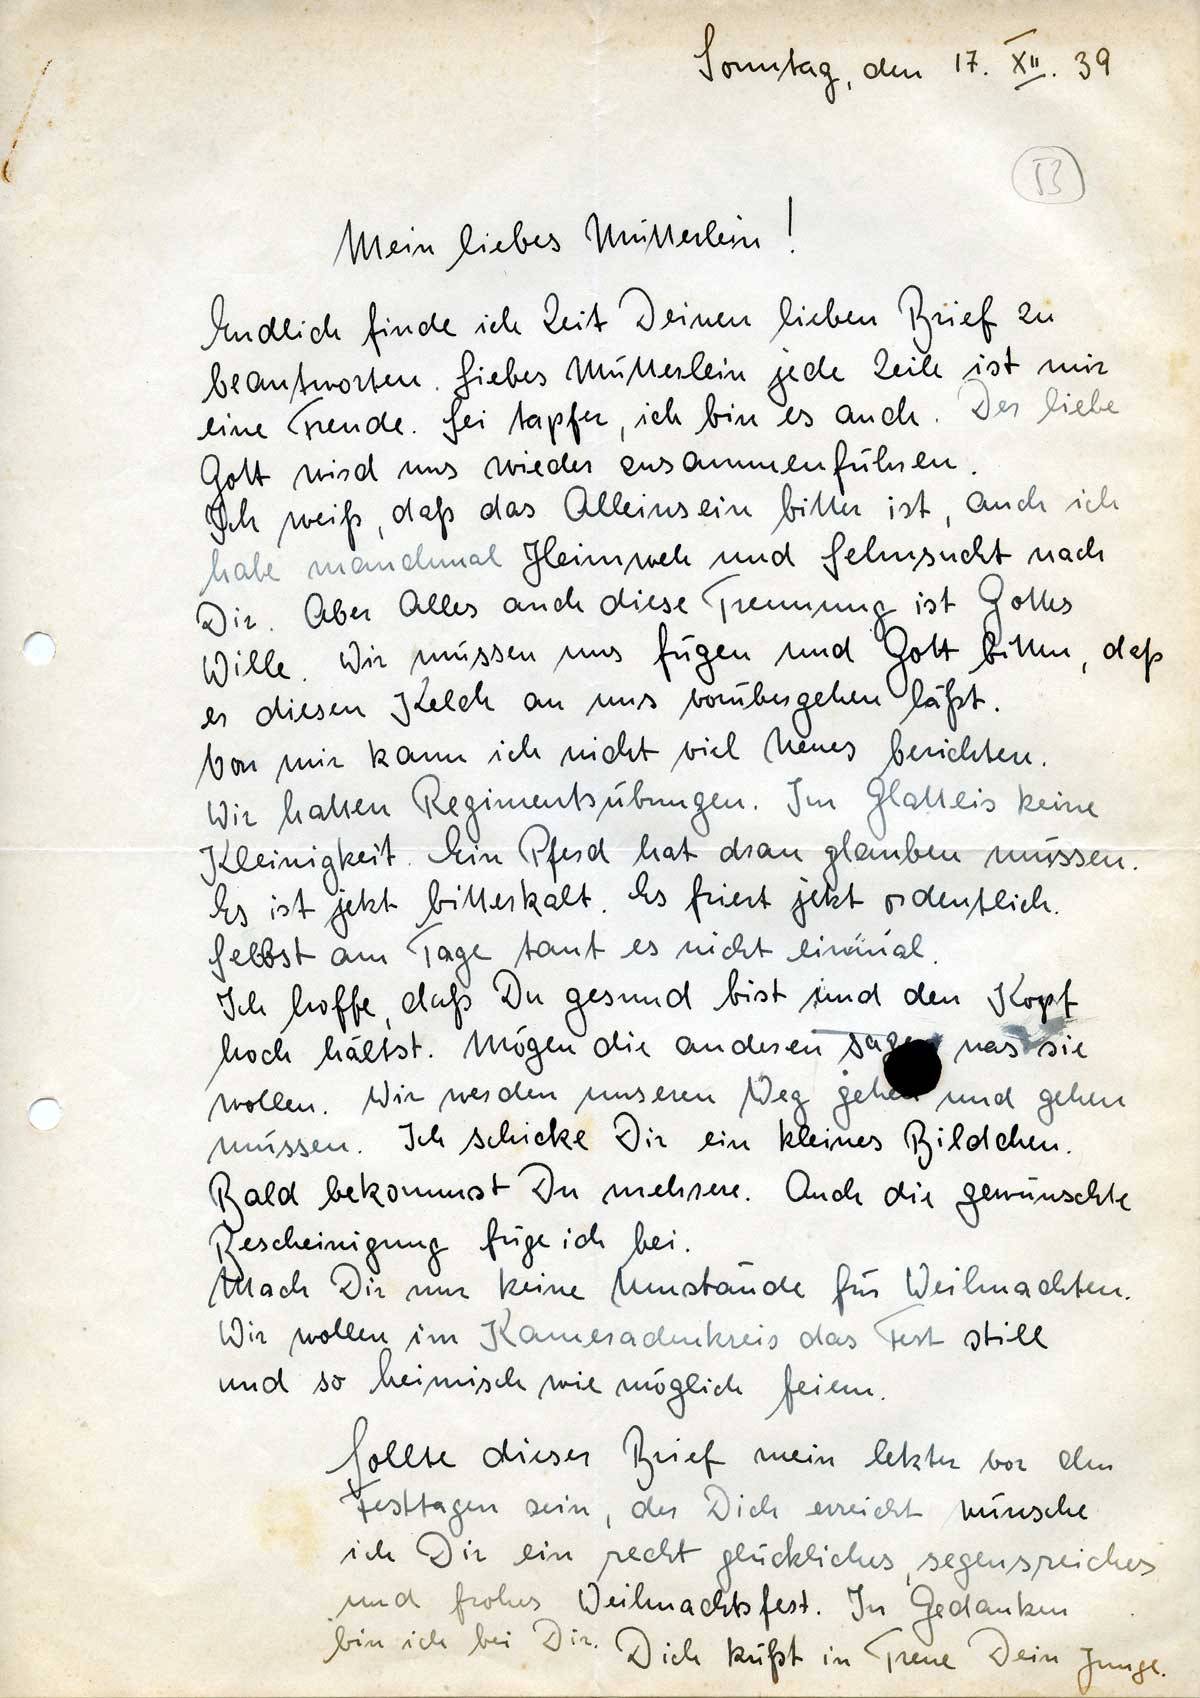 Sonntag, den 17. XII. 39
Mein liebes Mütterlein!
Endlich finde ich Zeit Deinen lieben Brief zu
beantworten. Liebes Mütterlein jede Zeile ist mir
eine Freude. Sei tapfer, ich bin es auch. Der liebe
Gott wird uns wieder zusammenführen.
Ich weiß, daß das Alleinsein bitter ist, auch ich
habe manchmal Heimweh und Sehnsucht nach
Dir. Aber Alles auch diese Trennung ist Gottes
Wille. Wir müssen uns fügen und Gott bitten, daß
er diesen Kelch an uns vorübergehen läßt.
Von mir kann ich nicht viel Neues berichten.
Wir hatten Regimentsübungen. Im Glatteis keine
Kleinigkeit. Ein Pferd hat dran glauben müssen.
Es ist jetzt bitterkalt. Es friert jetzt ordentlich.
Selbst am Tage taut es nicht einmal.
Ich hoffe, daß Du gesund bist und den Kopf
hoch hältst. Mögen die anderen sagen was sie
wollen. Wir werden unseren Weg gehen und gehen
müssen. Ich schicke Dir ein kleines Bildchen.
Bald bekommst Du mehrere. Auch die gewünschte
Bescheinigung füge ich bei.
Mach Dir nur keine Umstände für Weihnachten.
Wir wollen im Kameradenkreis das Fest still
und so heimisch wie möglich feiern.
Sollte dieser Brief mein letzter vor den
Festtagen sein, der Dich erreicht wünsche
ich Dir ein recht glückliches, segensreiches
und frohes Weihnachtsfest. In Gedanken
bin ich bei Dir. Dich küßt in Treue Dein Junge.